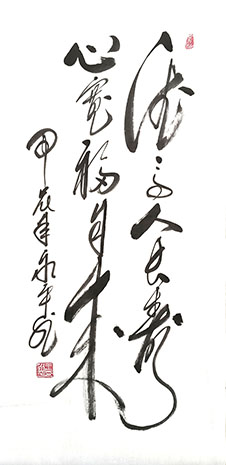 德高人长寿
心宽福自来
甲辰年永平书